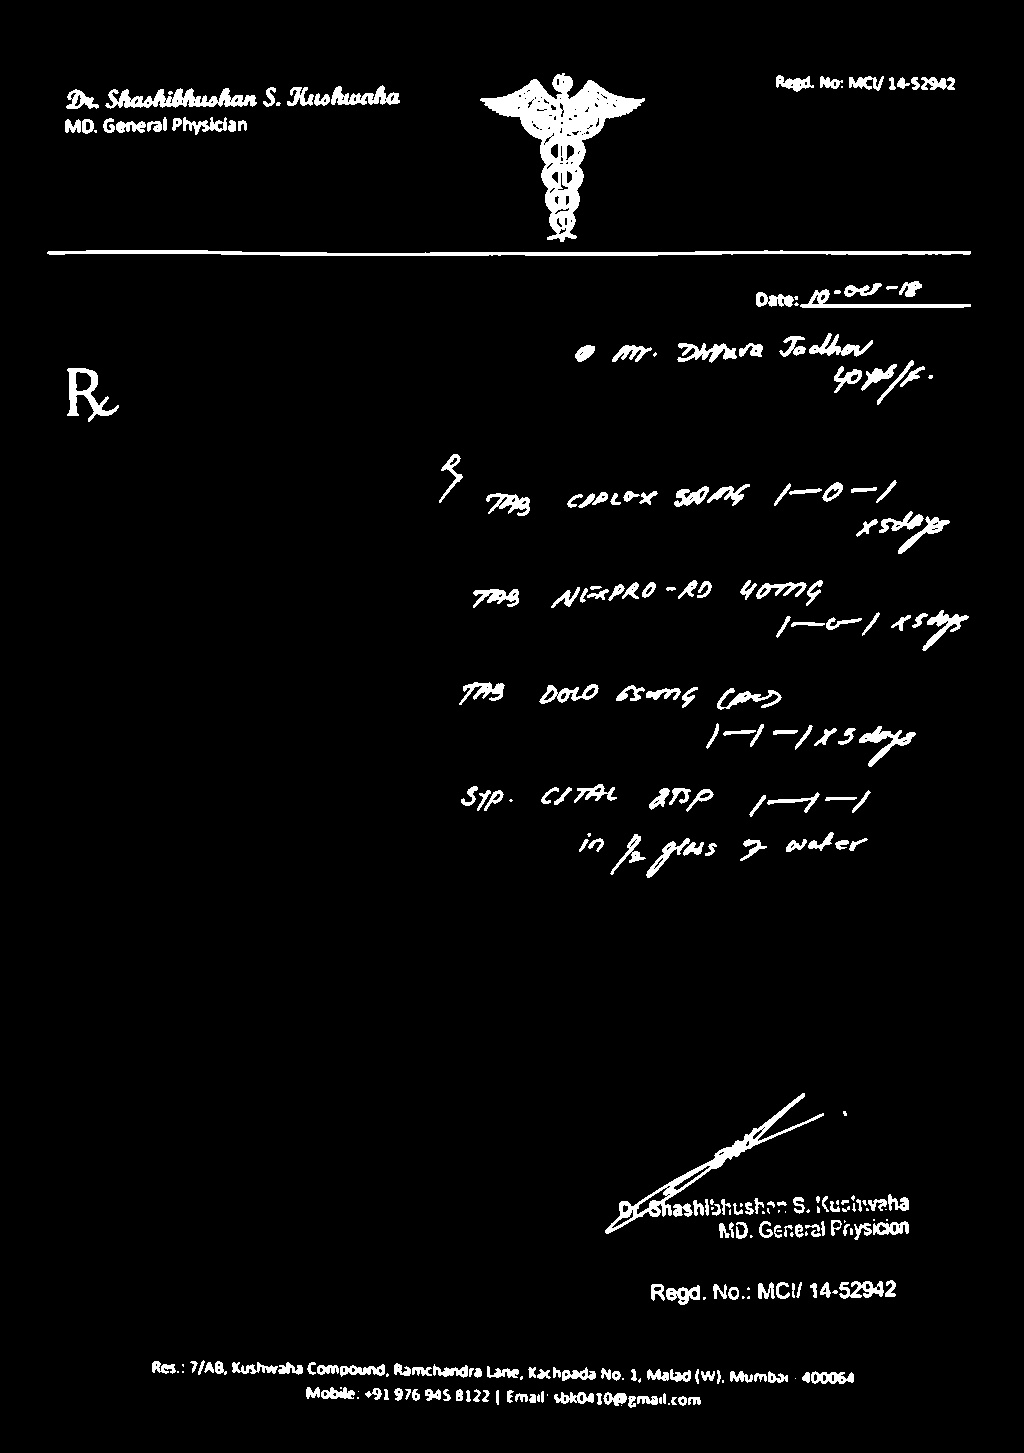 Dr. Shashibhushan S. Kushwaha
MD. General Physician
Regd. No: MCI/ 14-52942
Date: 10-Oct-18
Mr. Jadhav
40 yrs/F.
Rx
Rx
TAB CIPLOX 500MG 1—0—1
x 5 days
TAB NEXPRO-RD 40MG
1—0—1 x 5 days
TAB DOLO 650MG
1—1—1 x 3 days
SYP. CITAL 2TSP 1—1—1
in 1/2 glass of water
Dr. Shashibhushan S. Kushwaha
MD. General Physician
Regd. No.: MCI/ 14-52942
Res.: 7/AB, Kushwaha Compound, Ramchandra Lane, Kachpada No. 1, Malad (W), Mumbai - 400064
Mobile: +91 976 945 8122 | Email: sbk0410@gmail.com